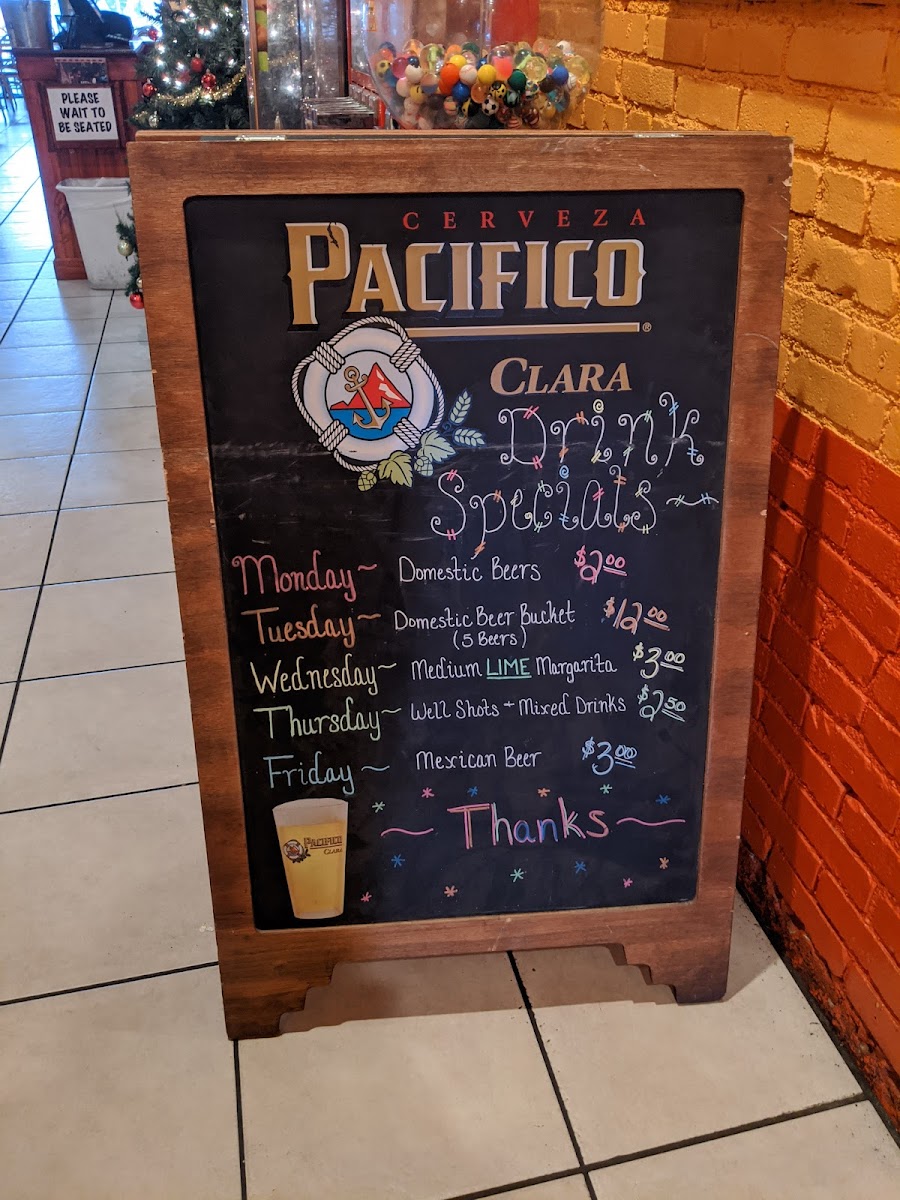 PLEASE
WAIT TO
BE SEATED
CERVEZA
PACIFICO
®
CLARA
Drink
Specials~
Monday~ Domestic Beers $2.00
Tuesday~ Domestic Beer Bucket $12.00
(5 Beers)
Wednesday~ Medium LIME Margarita $3.00
Thursday~ Well Shots + Mixed Drinks $2.50
Friday~ Mexican Beer $3.00
~Thanks~
PACIFICO
CLARA